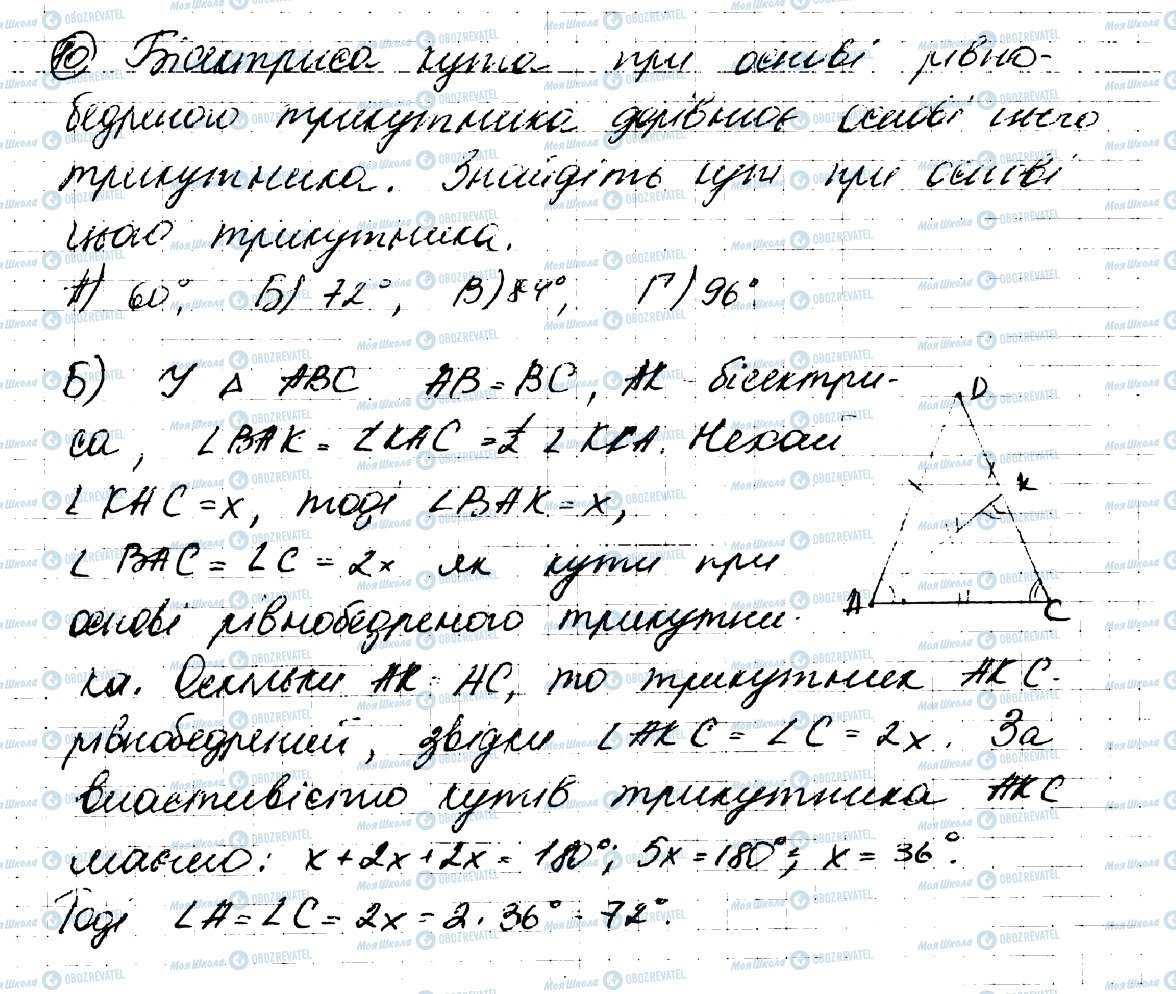 10 Бісектриса кута при основі рівно-
бедреного трикутника дорівнює основі цього
трикутника. Знайдіть кути при основі
цього трикутника.
А) 60°, Б) 72°, В) 84°, Г) 96°.
Б) У △ ABC AB = BC, AK - бісектри-
са, ∠BAK = ∠KAC = ½ ∠KCA. Нехай
∠KAC = x, тоді ∠BAK = x,
∠BAC = ∠C = 2x як кути при
основі рівнобедреного трикутни-
ка. Оскільки AK = AC, то трикутник AKC -
рівнобедрений, звідки ∠AKC = ∠C = 2x. За
властивістю кутів трикутника AKC
маємо: x + 2x + 2x = 180°; 5x = 180°; x = 36°.
Тоді ∠A = ∠C = 2x = 2 · 36° = 72°.
D
K
A
C